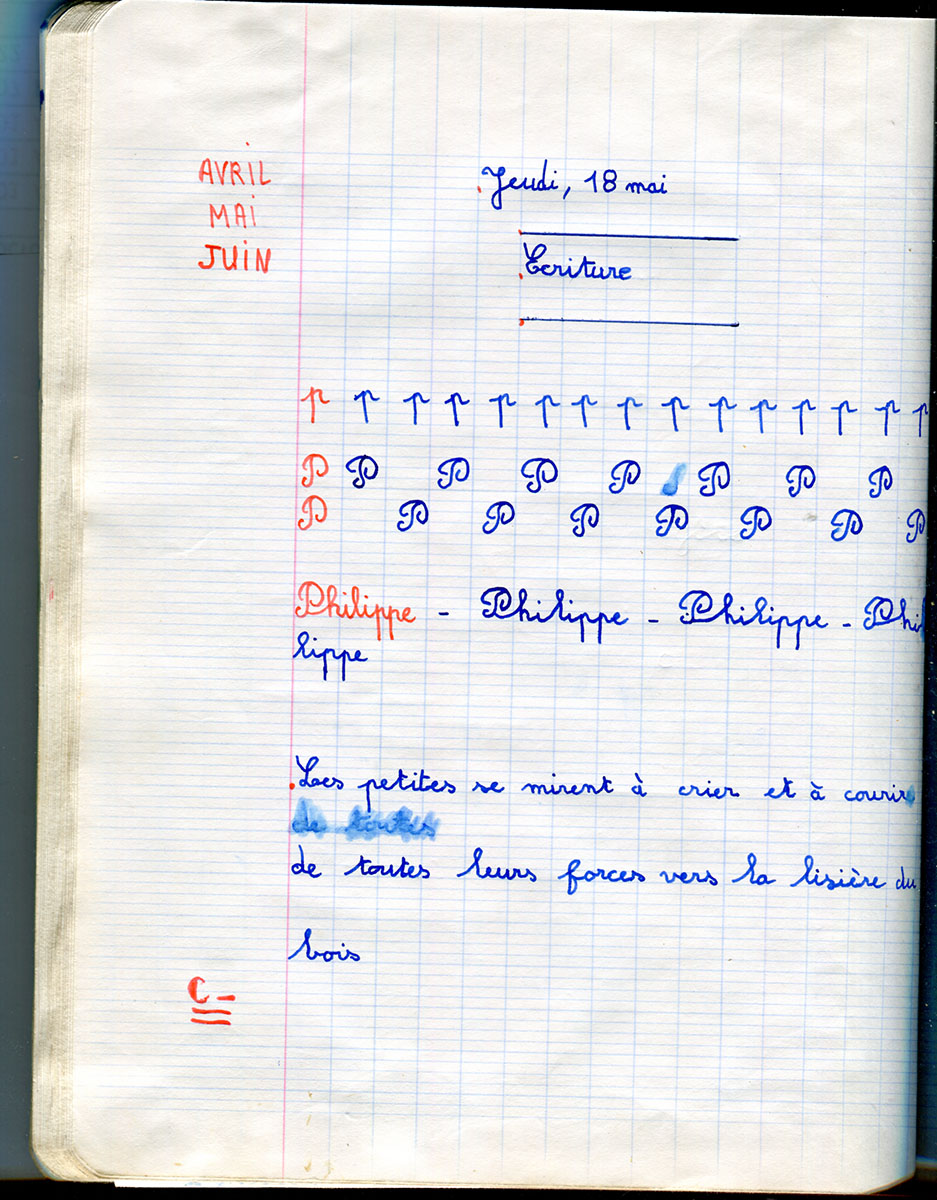 AVRIL
MAI
JUIN
Jeudi, 18 mai
Ecriture
p p p p p p p p p p p p p p p
P P P P P P P P
P P P P P P P P
Philippe - Philippe - Philippe - Phi
lippe
Les petites se mirent à crier et à courir
de toutes
de toutes leurs forces vers la lisière du
bois
C-